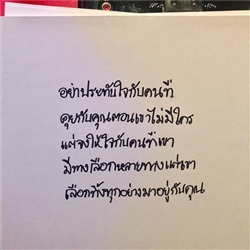 อย่าประทับใจกับคนที่
คุยกับคุณตอนเขาไม่มีใคร
แต่จงให้ใจกับคนที่เขา
มีทางเลือกหลายทางแต่เขา
เลือกทิ้งทุกอย่างมาอยู่กับคุณ